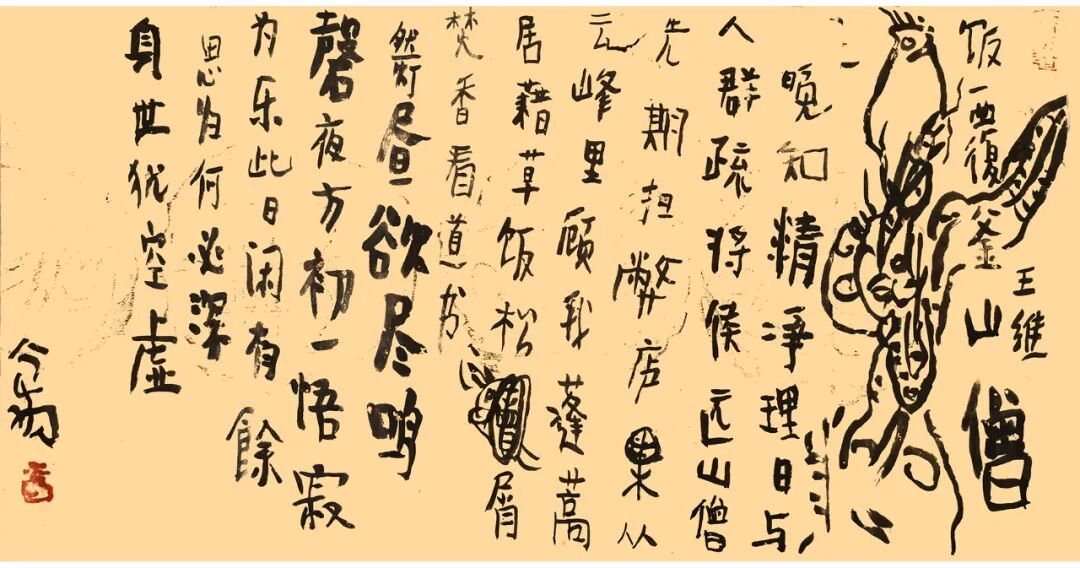 饭覆釜山僧
王維
晚知精净理日与
人群疏将候远山僧
先期扫弊庐果从
云峰里顾我蓬蒿
居藉草饭松屑
焚香看道书
然灯昼欲尽鸣
磬夜方初一悟寂
为乐此日闲有餘
思归何必深
身世犹空虚